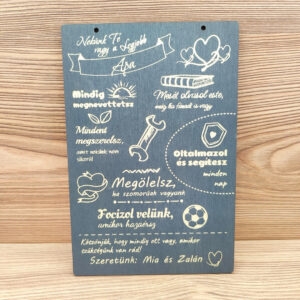 Nekünk Te
vagy a Legjobb
Apa
Mindig
megnevettetsz
Mesét olvasol este,
még ha fáradt is vagy
Mindent
megszerelsz,
amit nekünk nem
sikerül
Oltalmazol
és segítesz
minden
nap
Megölelsz,
ha szomorúak vagyunk
Focizol velünk,
amikor hazaérsz
Köszönjük, hogy mindig ott vagy, amikor
szükségünk van rád!
Szeretünk: Mia és Zalán